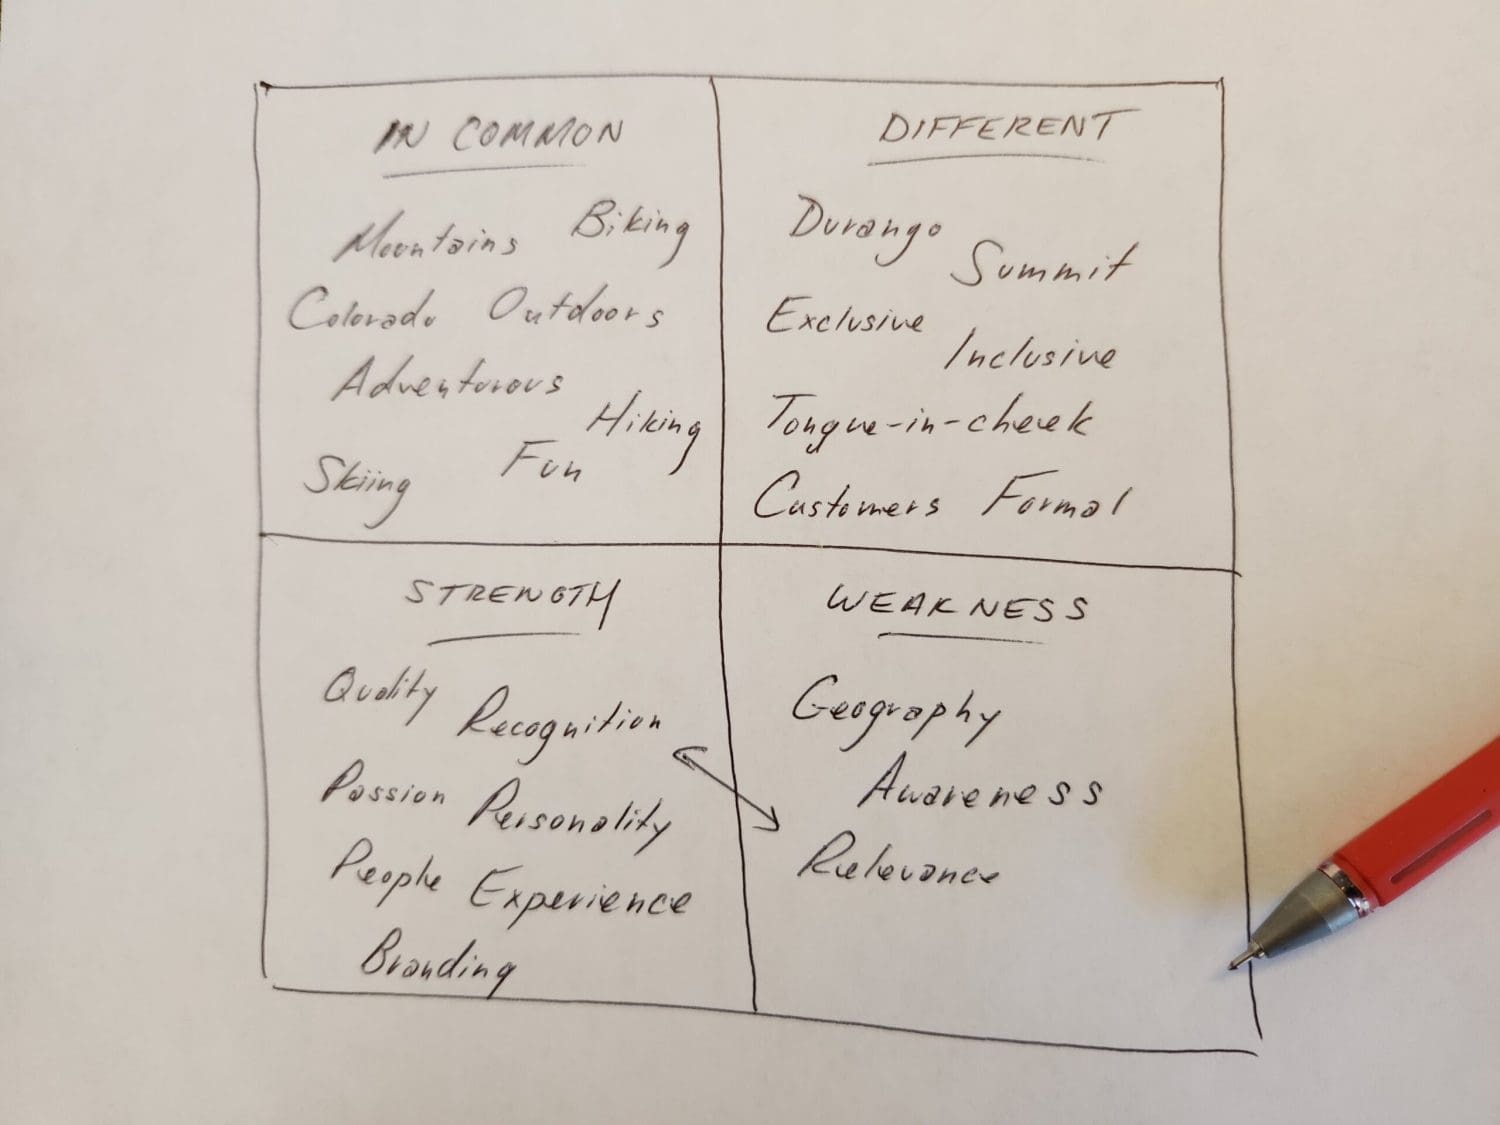 IN COMMON
Mountains Biking
Colorado Outdoors
Adventurous
Hiking
Skiing Fun
DIFFERENT
Durango
Summit
Exclusive
Inclusive
Tongue-in-cheek
Customers Formal
STRENGTH
Quality
Recognition
Passion Personality
People Experience
Branding
WEAKNESS
Geography
Awareness
Relevance